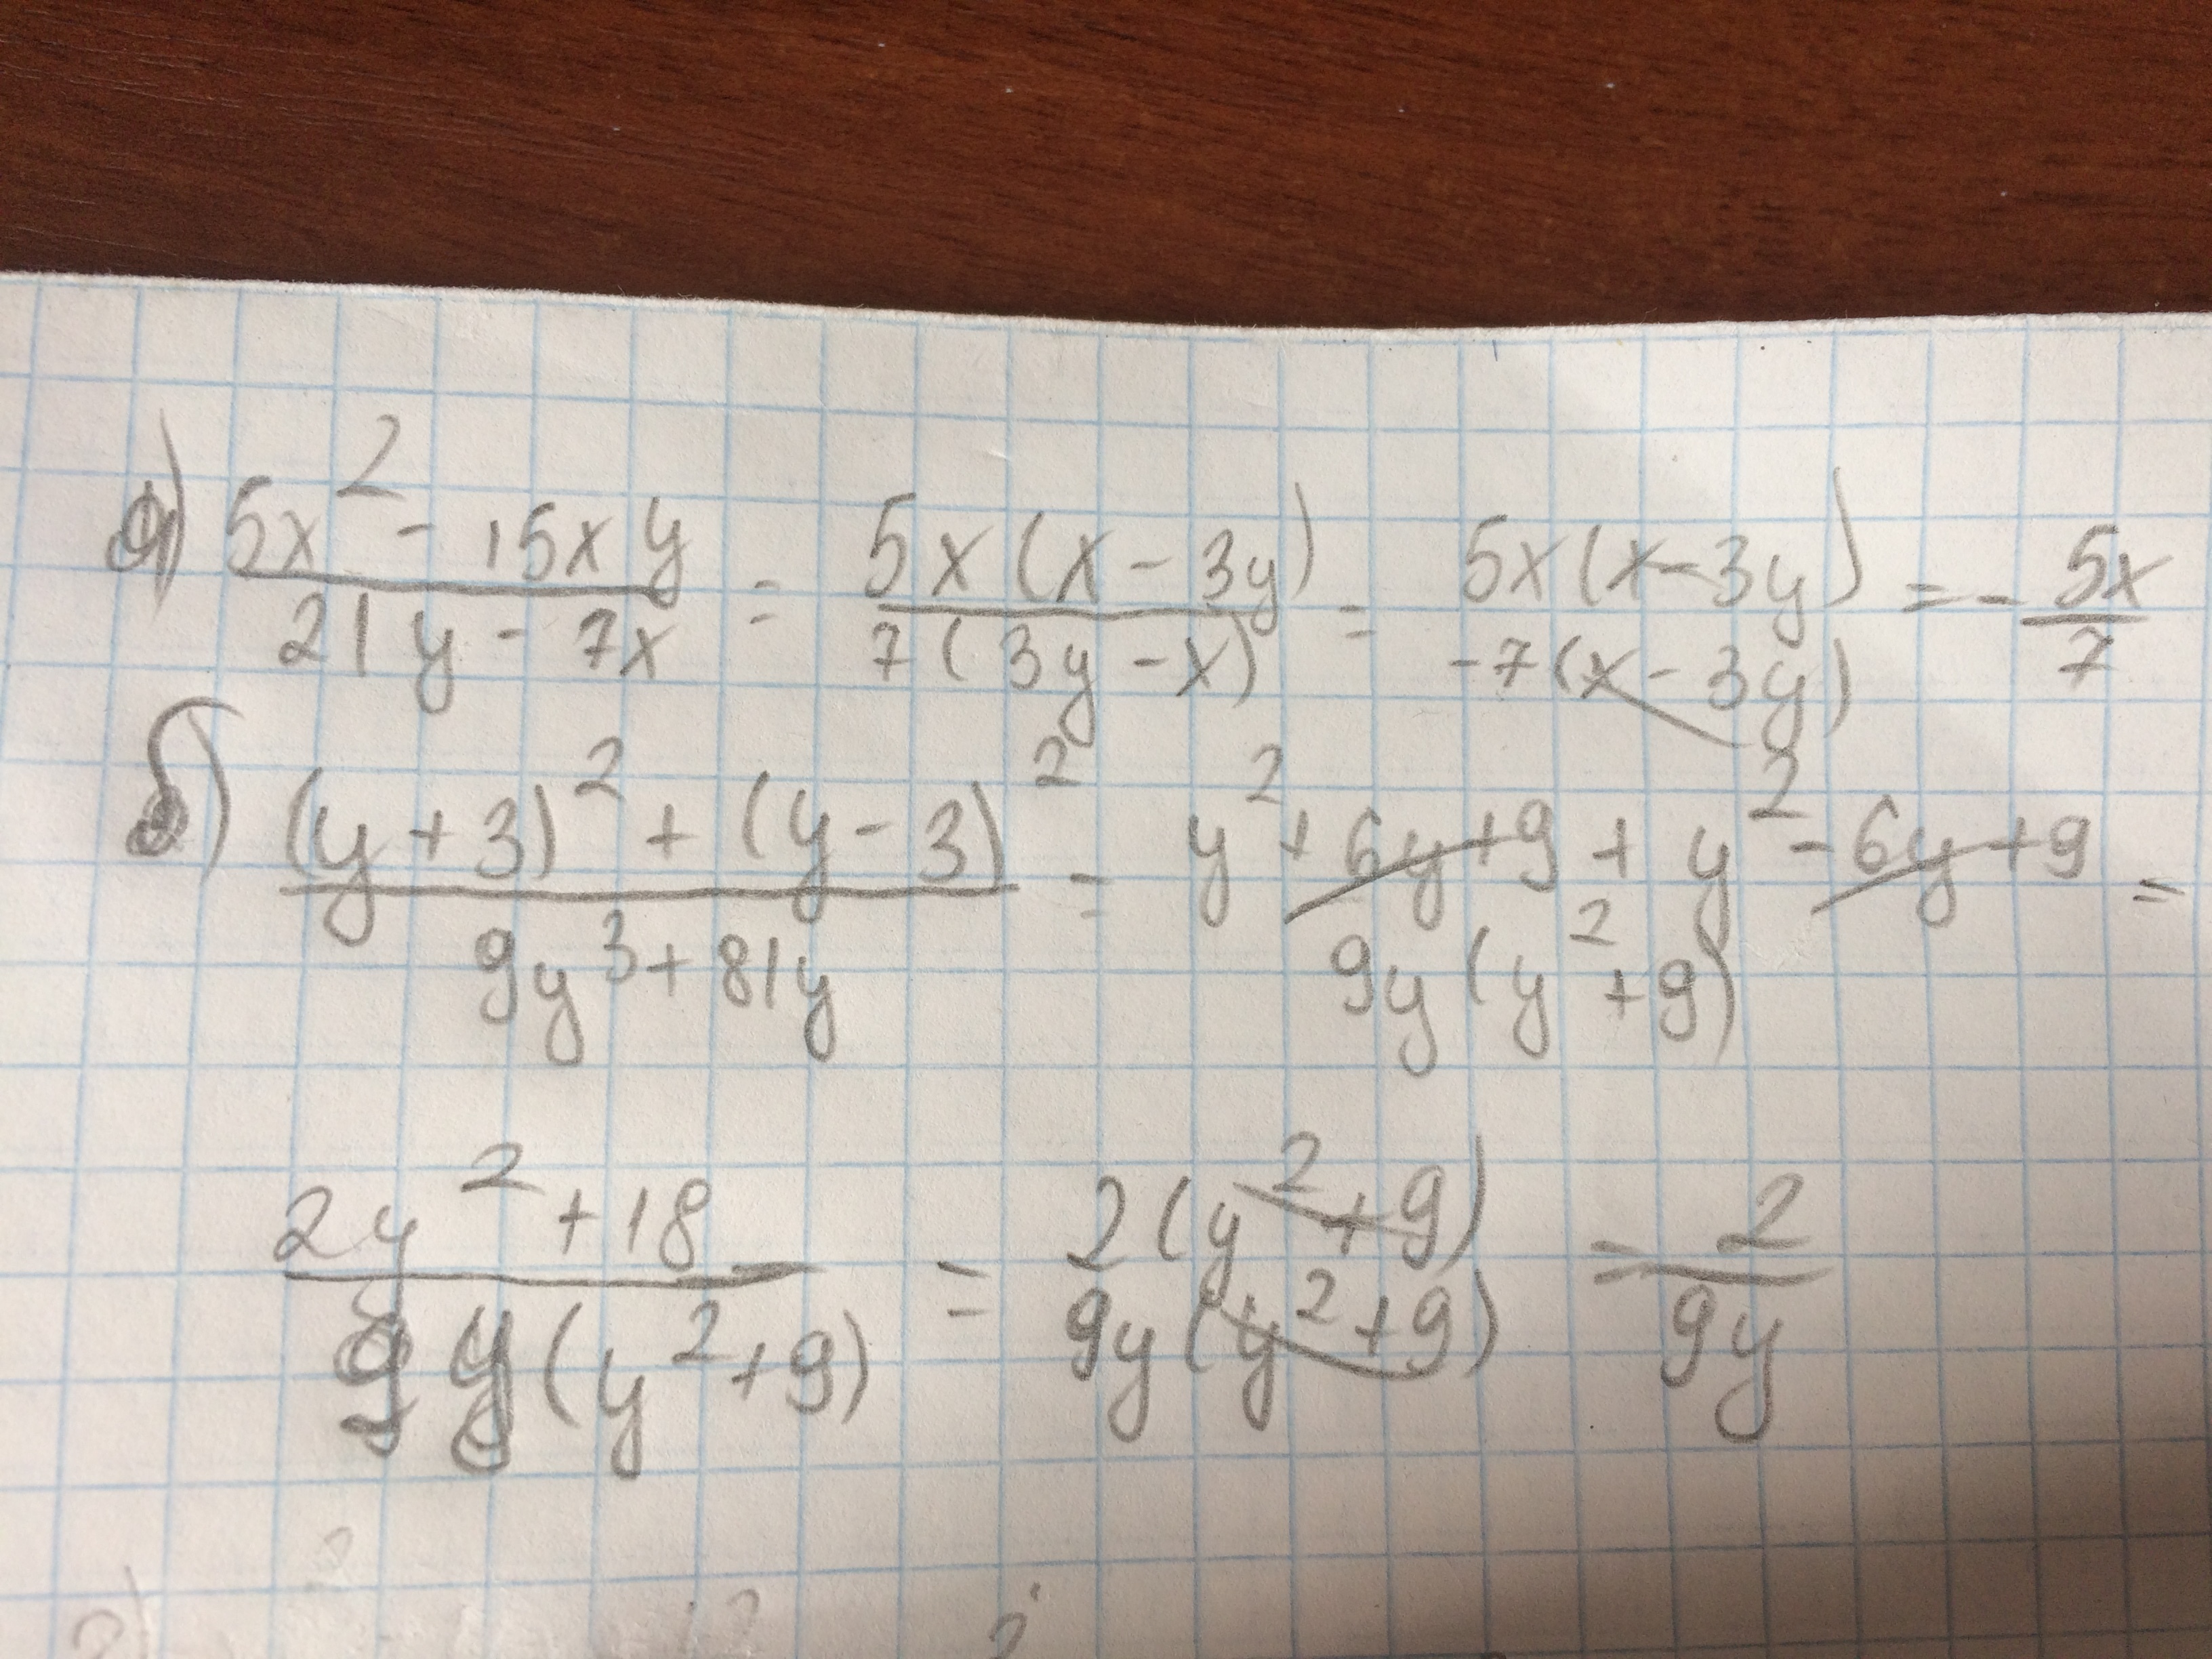 а) (5x² - 15xy)/(21y - 7x) = 5x(x - 3y)/7(3y - x) = 5x(x - 3y)/-7(x - 3y) = - 5x/7
б) ((y + 3)² + (y - 3)²)/(9y³ + 81y) = (y² + 6y + 9 + y² - 6y + 9)/9y(y² + 9) =
(2y² + 18)/9y(y² + 9) = 2(y² + 9)/9y(y² + 9) = 2/9y